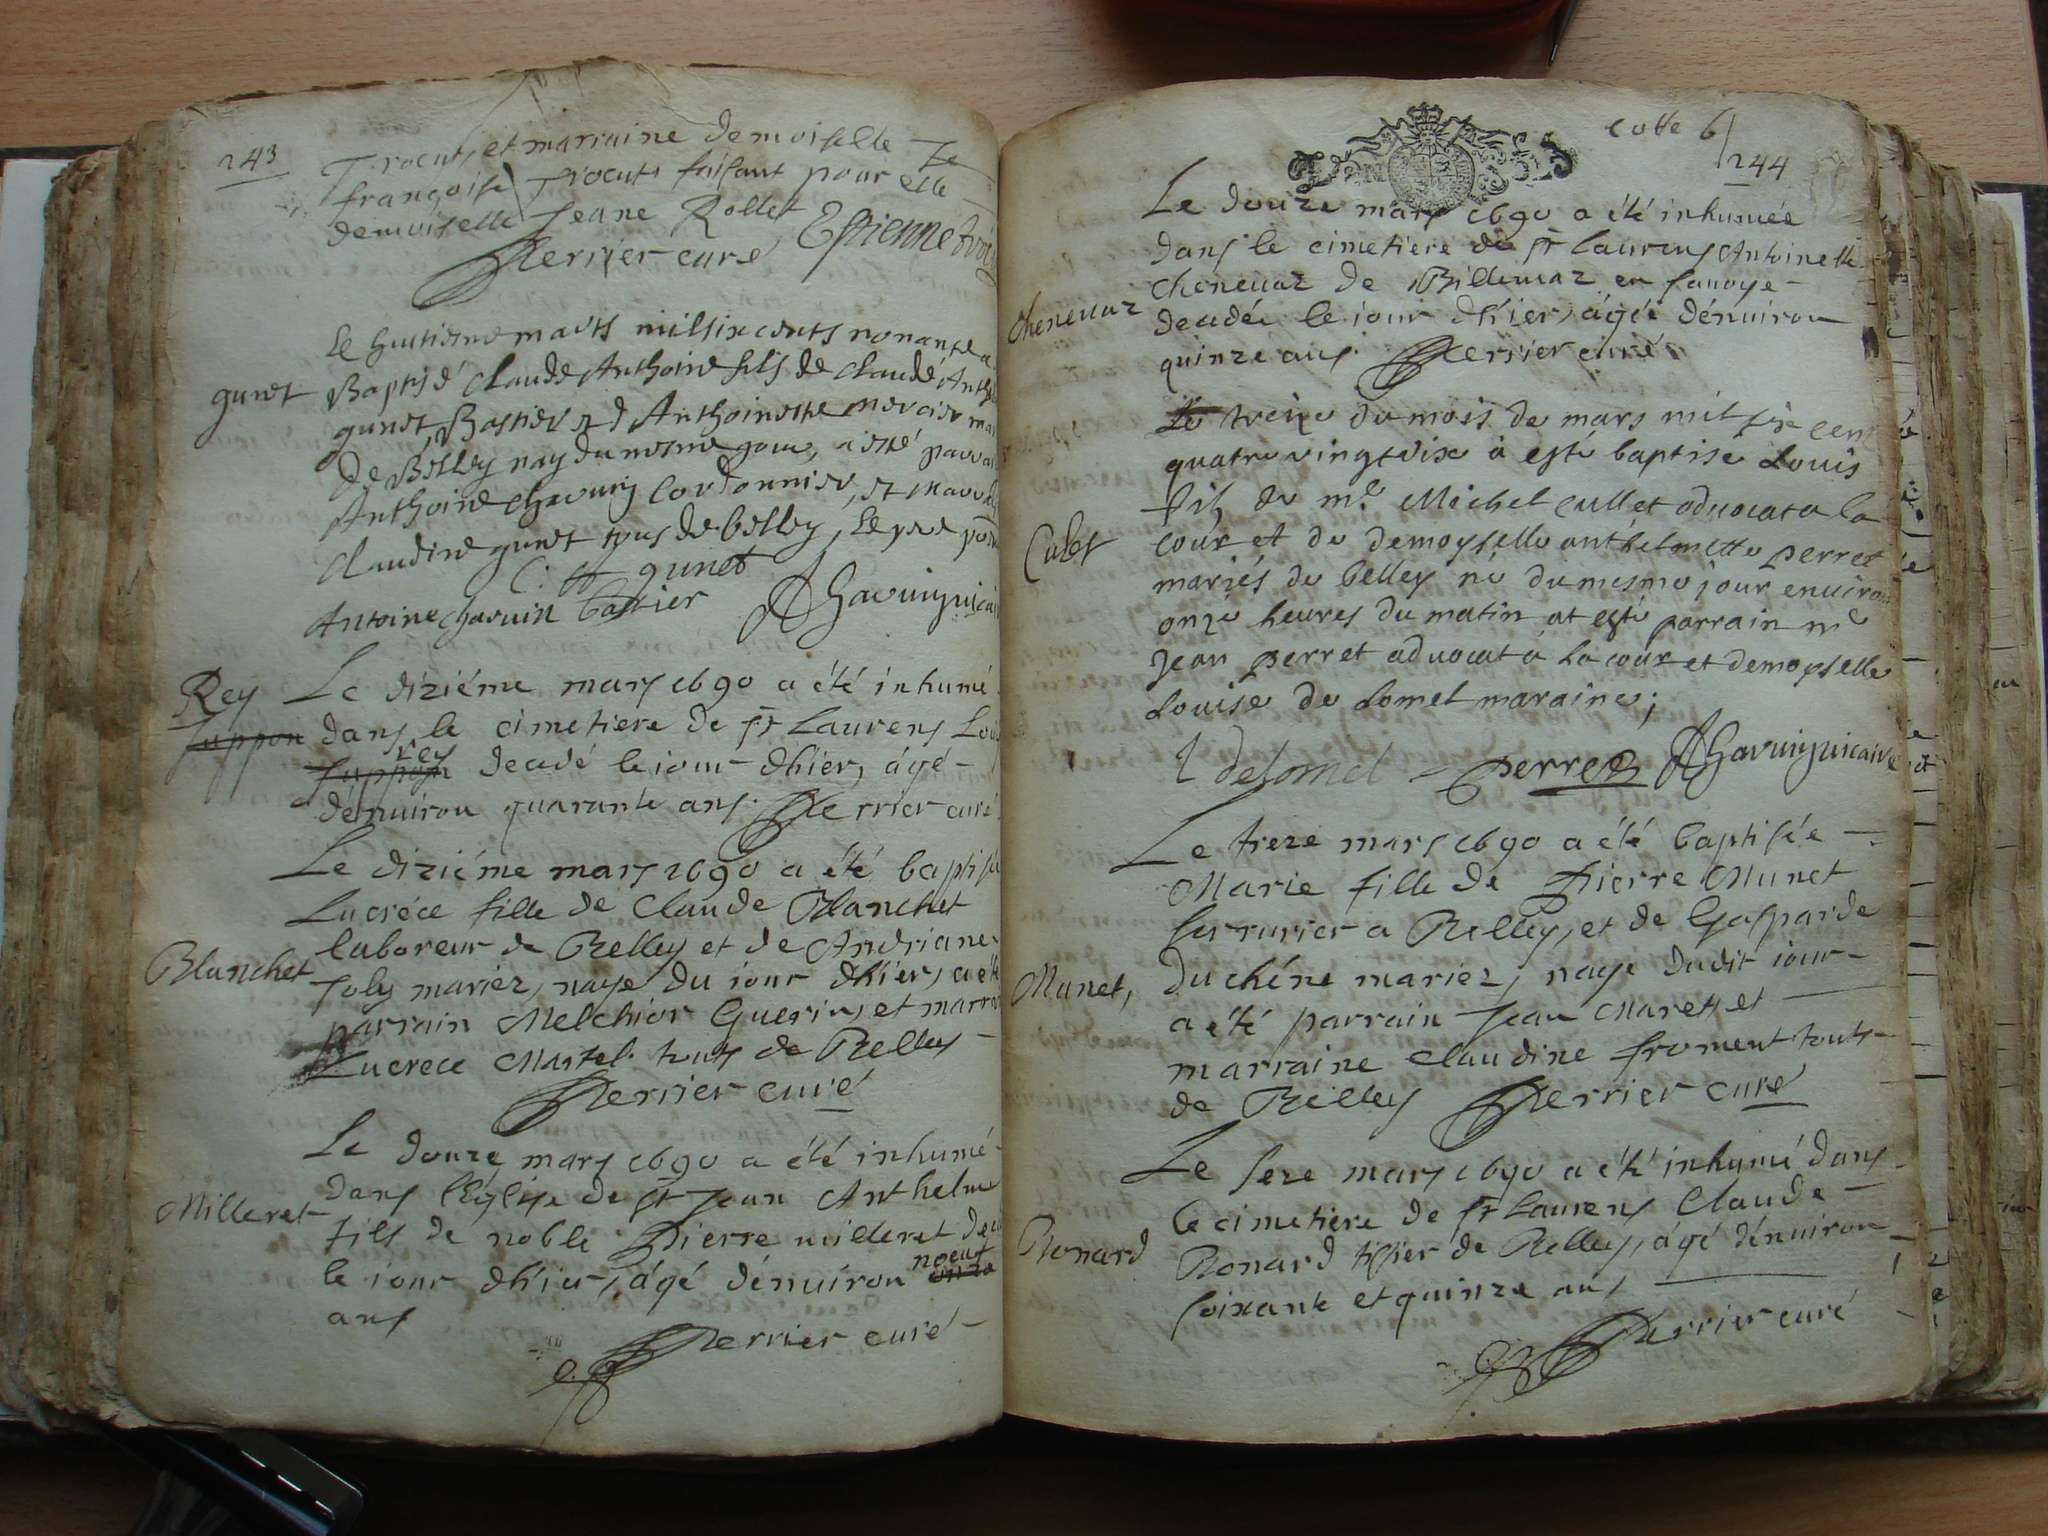 243
et marraine demoiselle
françoise faisant pour elle
demoiselle Jeane Rollet
Perrier curé Estienne
Le huitiesme marts mil six cents nonante a
gunet
Baptisé Claude Anthoine fils de Claude Anth
gunet Bastier et d Anthoinette mercier mar
de Belley nay du mesme jour, a esté parrain
Anthoine Charvin Cordonnier, et marr
Claudine gunet tous de belley, le
C. A gunet
Antoine Charvin bastier Charvin vicaire
Rey
Le diziéme mars 1690 a été inhumé
suppon
dans le cimetiere de st Laurens Loui
rey
suppon decedé le iour d'hier, ágé
dénuiron quarante ans. Perrier curé
Le diziéme mars 1690 a été baptisée
Lucréce fille de Claude Blanchet
laboreur de Belley et de Andriane
Blanchet
Joly mariez, naye du iour d'hier, a été
parrain Melchior Guerin, et marra
Lucrece Martel. touts de Belley
Perrier curé
Le douze mars 1690 a été inhumé
dans l'Eglise de st Jean Anthelme
Milleret
fils de noble Pierre milleret dece
noeuf
le iour d'hier, ágé dénuiron onze
ans
Perrier curé
cotte 6
244
Le douze mars 1690 a été inhumée
dans le cimetiere de st Laurens Antoinette
Cheneuaz
Cheneuaz de Billemaz en sauoye
decedée le iour d'hier, ágée dénuiron
quinze ans. Perrier curé
Le treize du mois de mars mil six cent
quatre vingt dix à esté baptisé Louis
fils de mr. Michel Cullet aduocat a la
Culet
cour et de demoyselle anthelmette perret
mariés de belley né du mesme jour enuiron
onze heures du matin at esté parrain me
Jean perret aduocat à la cour et demoyselle
Louise de Lomel maraine;
L delomel perret Charvin vicaire
Le treze mars 1690 a été baptisée
Marie fille de Pierre Munet
serrurier a Belley, et de Gasparde
Munet,
duchéne mariez, naye dudit iour
a été parrain Jean Marets et
marraine Claudine froment touts
de Belley Perrier curé
Le seze mars 1690 a été inhumé dans
le cimetiere de st Laurens Claude
Bonard
Bonard tissier de Belley, ágé dénuiron
soixante et quinze ans
Perrier curé